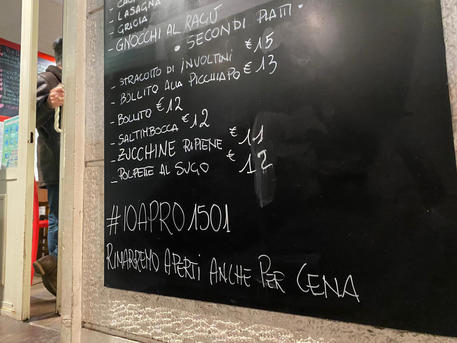 - LASAGNA
- GRICIA
- GNOCCHI AL RAGÙ
• SECONDI PIATTI •
- STRACOTTO DI INVOLTINI €15
- BOLLITO ALLA PICCHIAPÒ €13
- BOLLITO €12
- SALTIMBOCCA €12
- ZUCCHINE RIPIENE €11
- POLPETTE AL SUGO €12
#IOAPRO1501
RIMARREMO APERTI ANCHE PER CENA